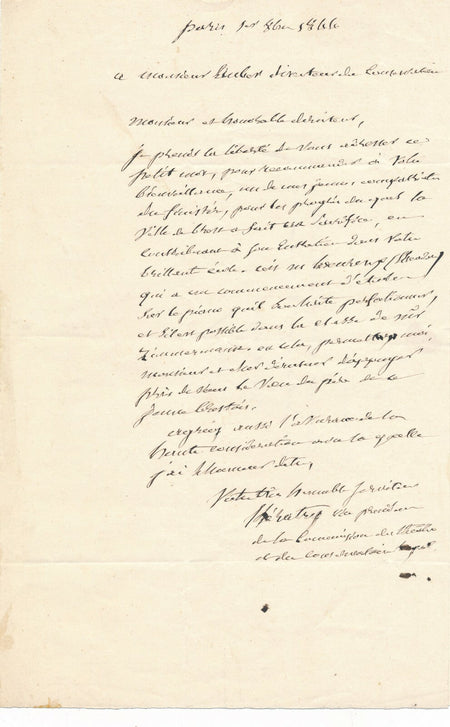 paris 1er 8bre 1844
a monsieur Auber directeur du Conservatoire
Monsieur et honorable directeur,
je prends la liberté de vous adresser ce
petit mot, pour recommander à votre
bienveillance, un de mes jeunes compatriotes
du finistère, pour les progrès du quel la
Ville de Brest a fait un sacrifice, en
contribuant à son entretien dans votre
brillante école. C'est m
qui a un commencement d'études
sur le piano qu'il souhaite perfectionner,
et s'il est possible dans la classe de mr
Zimmermann. en cela, permettez moi,
monsieur et cher directeur d'appuyer
près de vous le vœu du père de ce
jeune Brestois.
agréez aussi l'assurance de la
haute considération avec la quelle
j'ai l'honneur d'être,
Votre très humble serviteur
vice président
de la Commission du théâtre
et du Conservatoire royal.